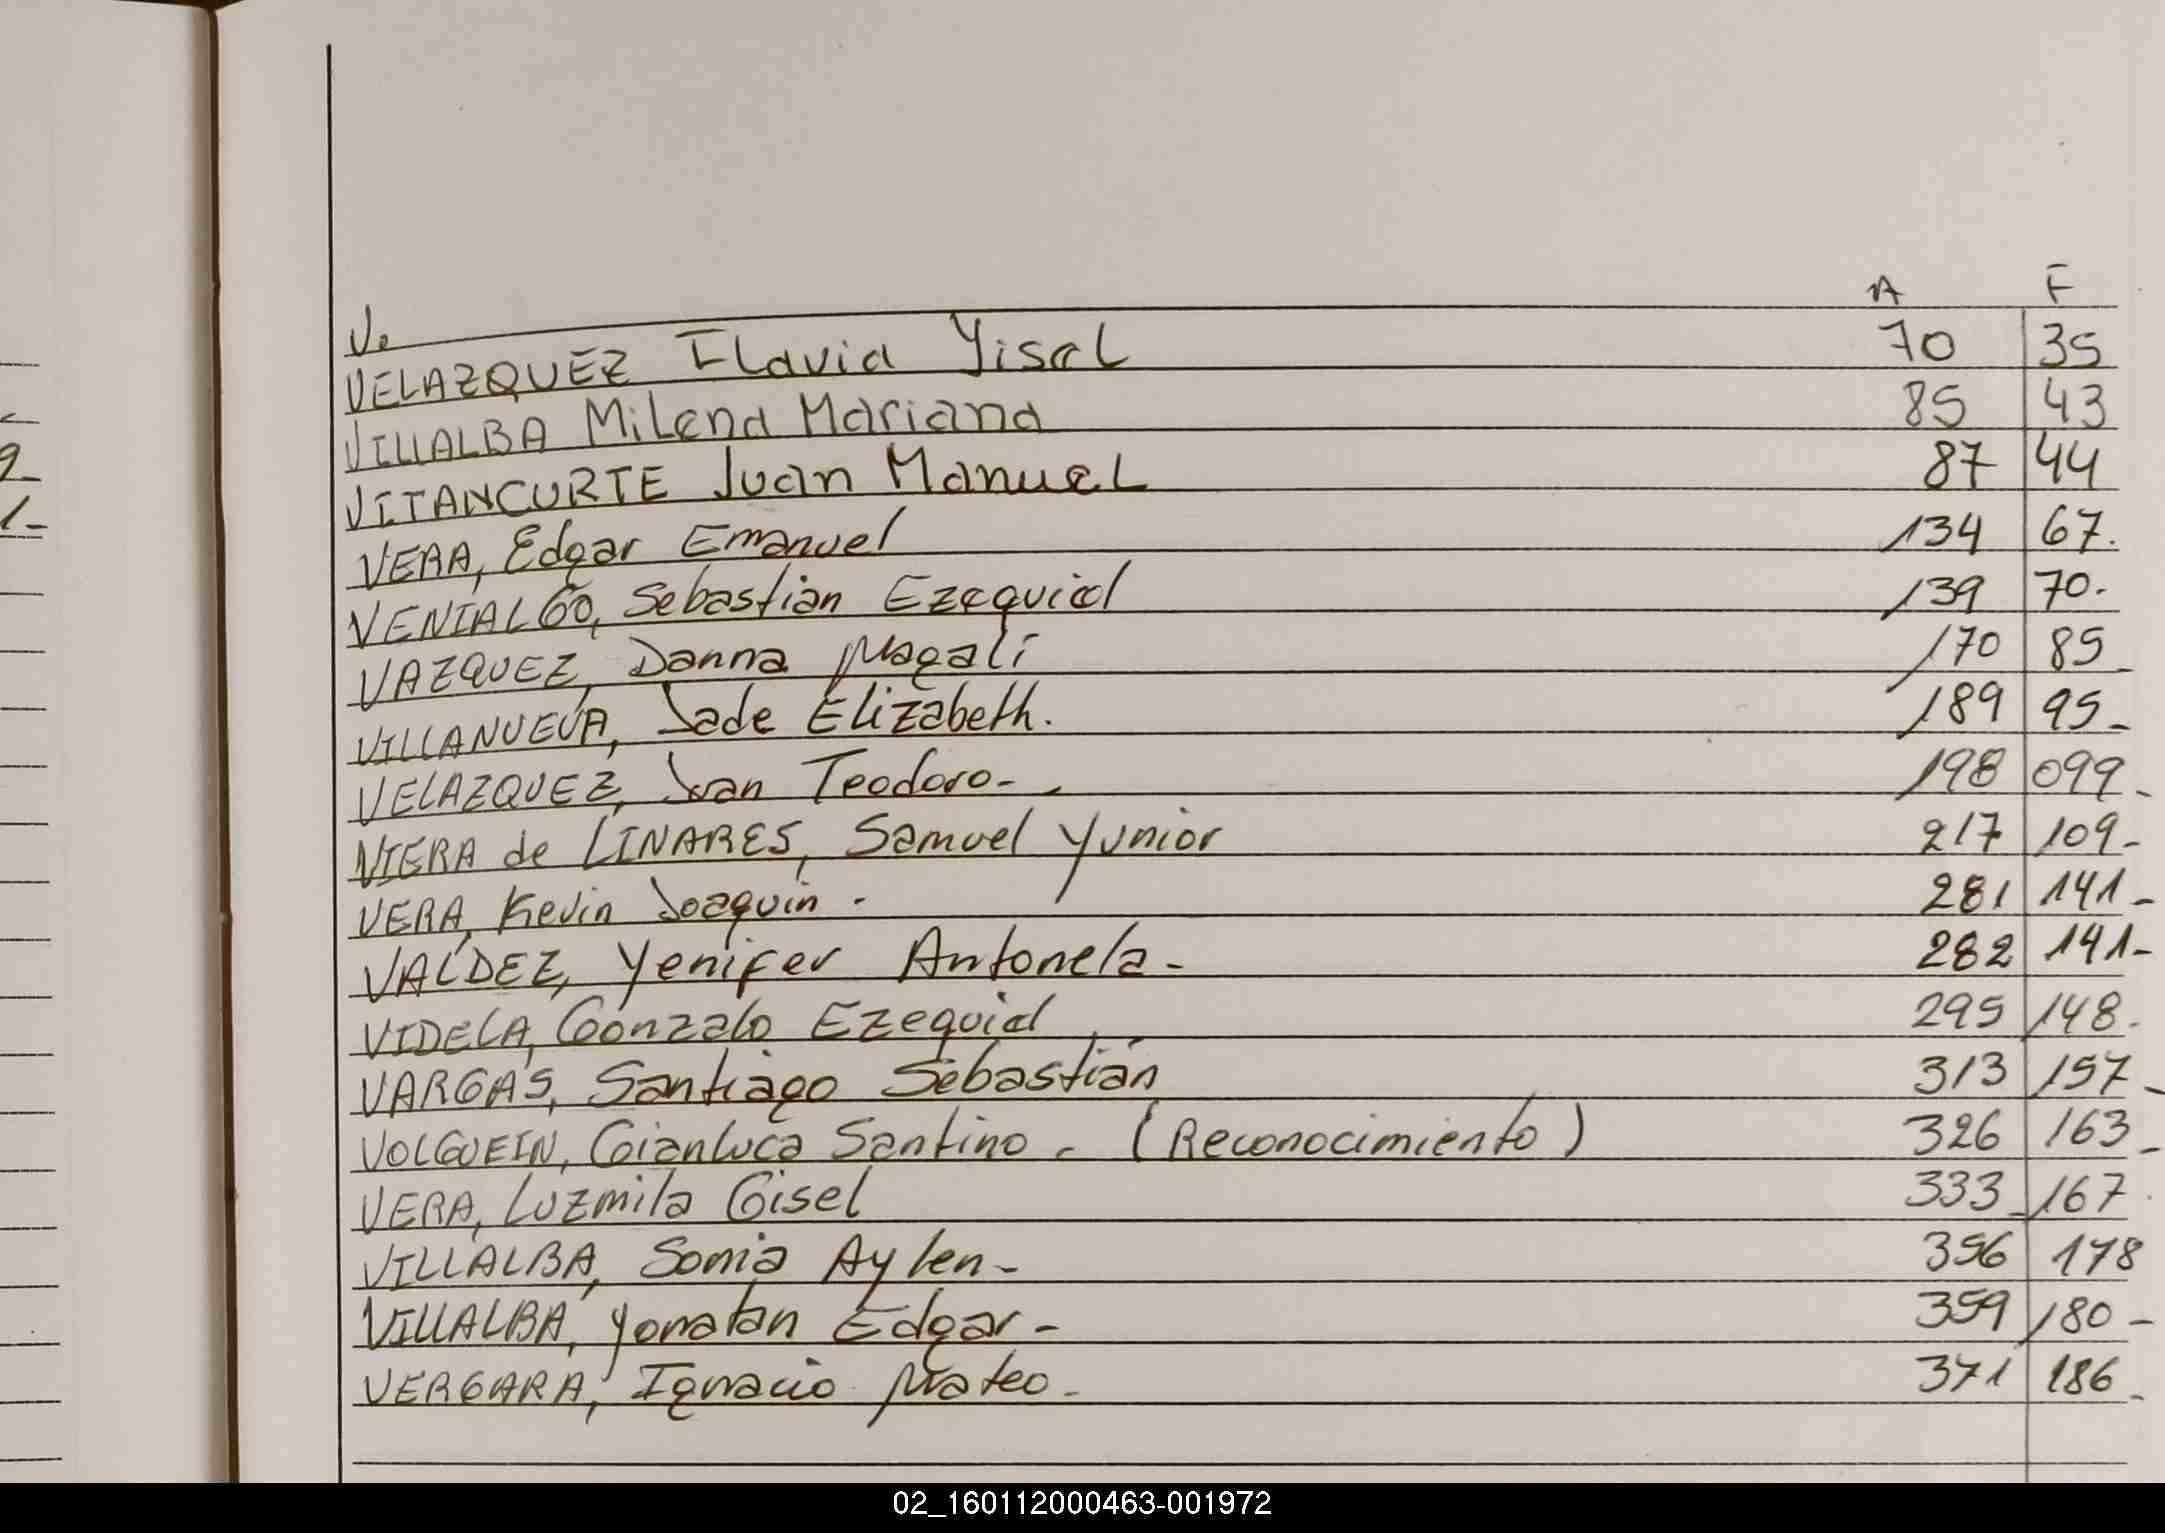 A F
V.
VELAZQUEZ Flavia Yisel 70 35
VILLALBA Milena Mariana 85 43
VITANCURTE Juan Manuel 87 44
VERA, Edgar Emanuel 134 67.
VENIALGO, Sebastian Ezequiel 139 70.
VAZQUEZ, Danna Magali 170 85-
VILLANUEVA, Jade Elizabeth. 189 95-
VELAZQUEZ, Juan Teodoro-. 198 099-
VIERA de LINARES, Samuel Yunior 217 109-
VERA, Kevin Joaquin. 281 141-
VALDEZ, Yenifer Antonela- 282 141-
VIDELA, Gonzalo Ezequiel 295 148.
VARGAS, Santiago Sebastián 313 157-
VOLGUEIN, Gianluca Santino. (Reconocimiento) 326 163-
VERA, Luzmila Gisel 333 167.
VILLALBA, Sonia Aylen- 356 178
VILLALBA, Yonatan Edgar- 359 180-
VERGARA, Ignacio Mateo- 371 186-
02_160112000463-001972